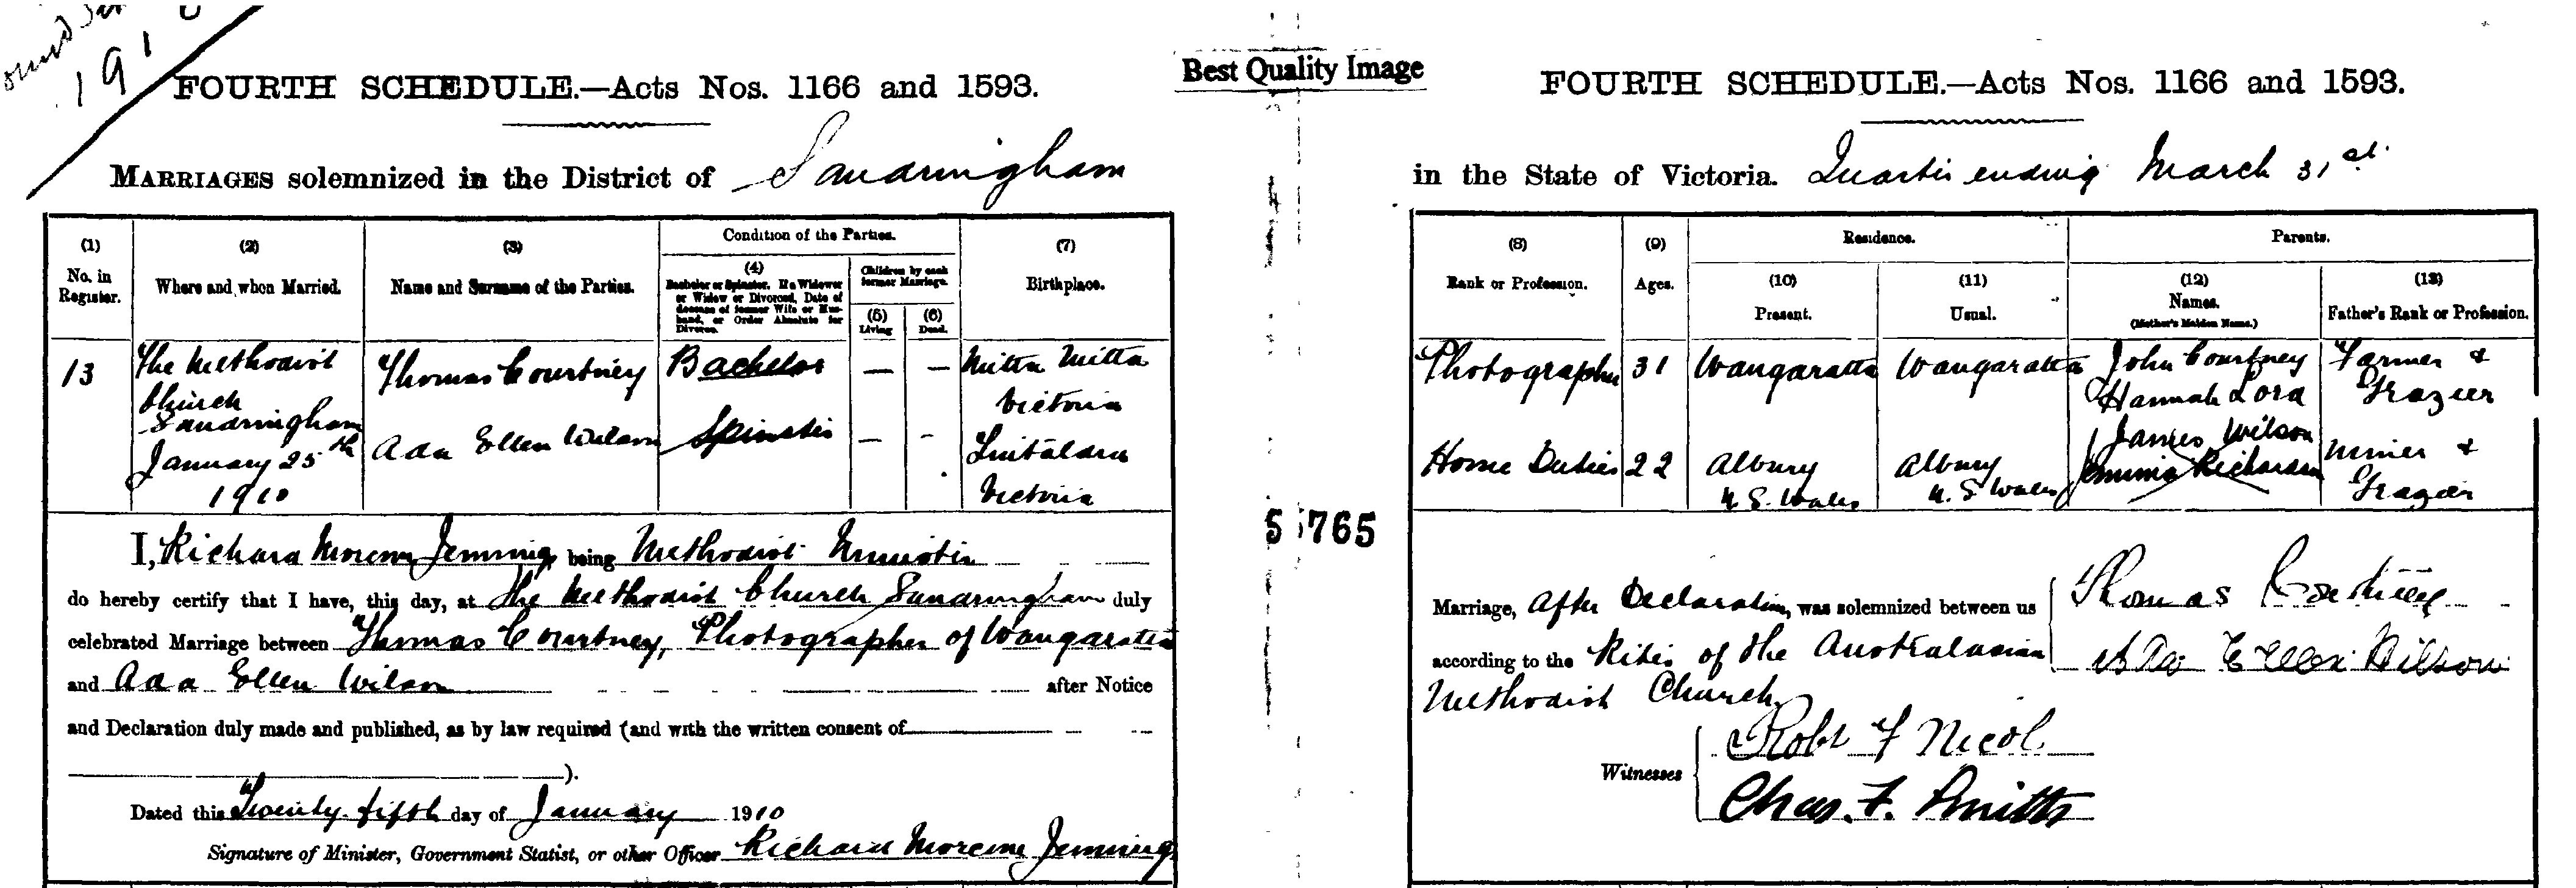 191
FOURTH SCHEDULE.—Acts Nos. 1166 and 1593.
MARRIAGES solemnized in the District of Sandringham
(1)
No. in
Register.
(2)
Where and when Married.
(3)
Name and Surname of the Parties.
Condition of the Parties.
(4)
Bachelor or Spinster. If a Widower
or Widow or Divorced, Date of
decease of former Wife or Hus-
band, or Order Absolute for
Divorce.
Children by each
former Marriage.
(5)
Living
(6)
Dead.
(7)
Birthplace.
13
The Methodist
Church
Sandringham
January 25th
1910
Thomas Courtney
Ada Ellen Wilson
Bachelor
Spinster
— —
— -
Mitta Mitta
Victoria
Victoria
I, Richard Jennings being Methodist Minister
do hereby certify that I have, this day, at The Methodist Church Sandringham duly
celebrated Marriage between Thomas Courtney, Photographer of Wangaratta
and Ada Ellen Wilson after Notice
and Declaration duly made and published, as by law required (and with the written consent of
).
Dated this Twenty fifth day of January 1910
Signature of Minister, Government Statist, or other Officer Richard Jennings
Best Quality Image
5 765
FOURTH SCHEDULE.—Acts Nos. 1166 and 1593.
in the State of Victoria. Quarter ending March 31st
(8)
Rank or Profession.
(9)
Ages.
Residence.
(10)
Present.
(11)
Usual.
Parents.
(12)
Names.
(Mother's Maiden Name.)
(13)
Father's Rank or Profession.
Photographer
31
Wangaratta
Wangaratta
John Courtney
Hannah Lord
Farmer &
Grazier
Home Duties
22
Albury
N. S. Wales
Albury
N. S. Wales
James Wilson
Emma Richardson
Miner &
Grazier
Marriage, After Declaration, was solemnized between us
Thomas Courtney
according to the Rites of the Australasian
Ada Ellen Wilson
Methodist Church
Witnesses
Robt F Nicol
Chas. F. Smith